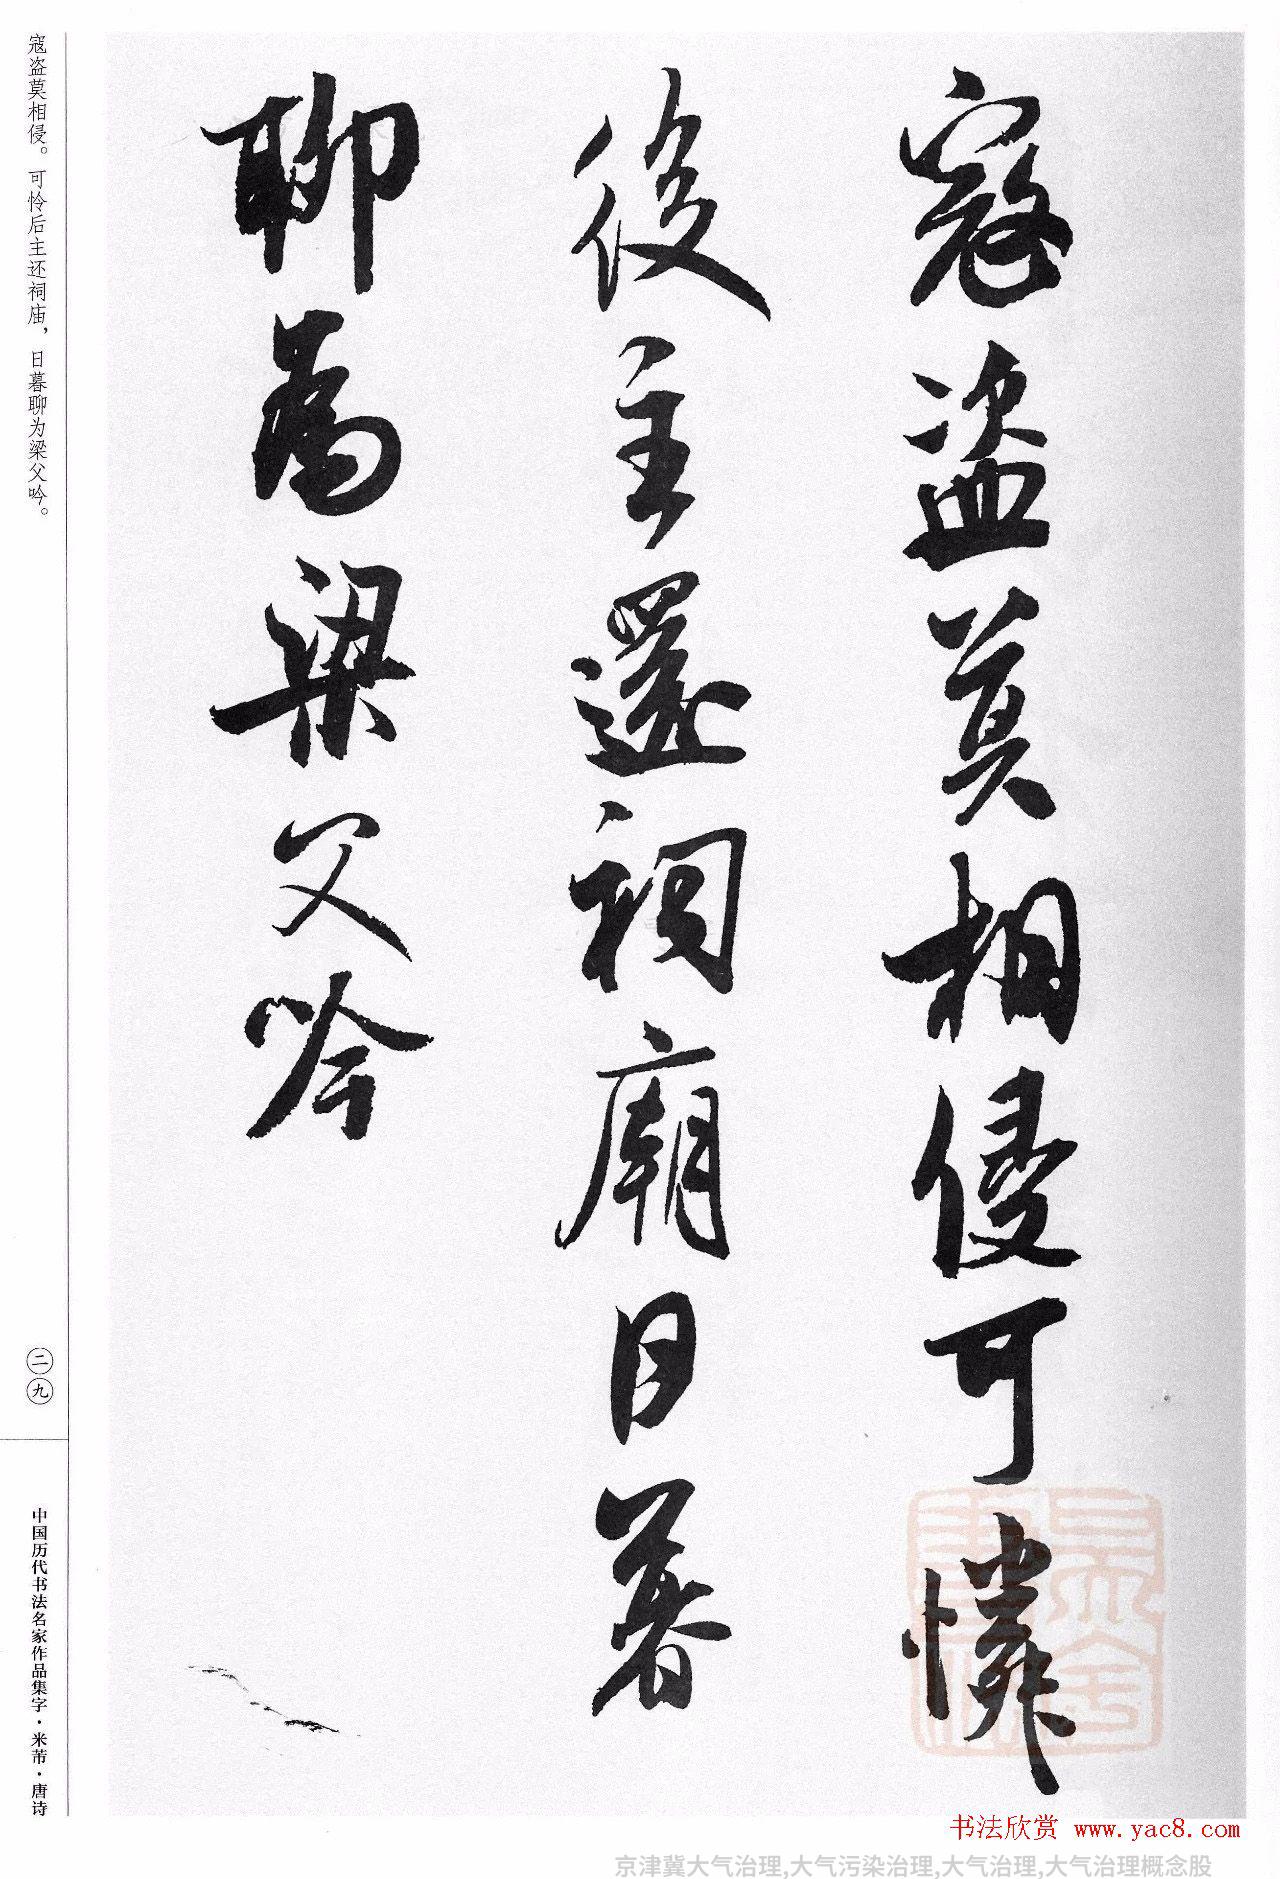 寇盗莫相侵可憐
後主還祠廟日暮
聊為梁父吟
寇盗莫相侵。可怜后主还祠庙，日暮聊为梁父吟。
二九
中国历代书法名家作品集字·米芾·唐诗
书法欣赏 www.yac8.com
京津冀大气治理,大气污染治理,大气治理,大气治理概念股